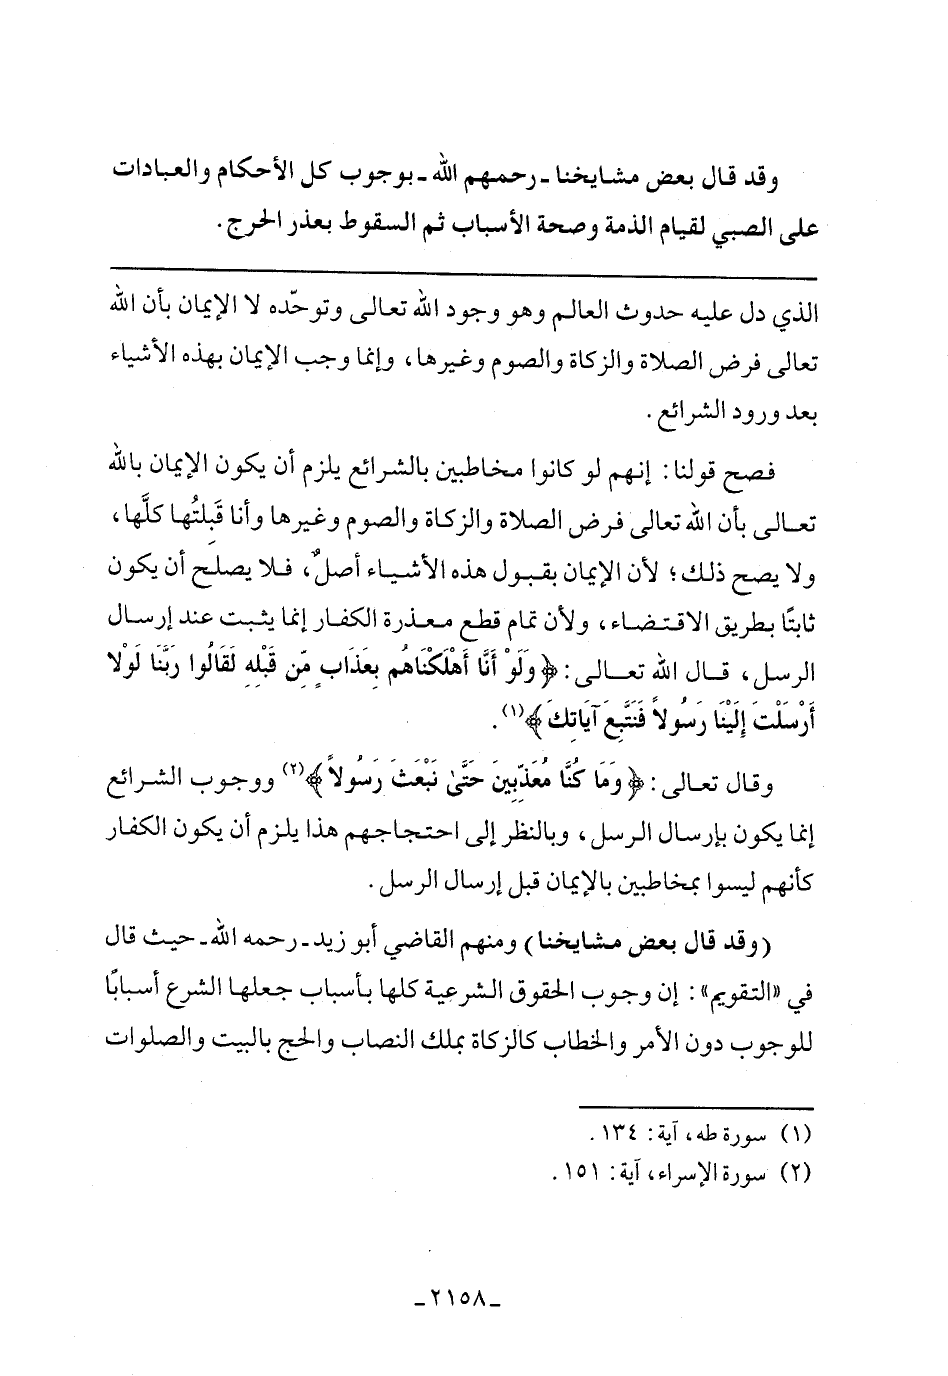 وقد قال بعض مشايخنا ـ رحمهم الله ـ بوجوب كل الأحكام والعبادات
على الصبي لقيام الذمة وصحة الأسباب ثم السقوط بعذر الحرج.
الذي دل عليه حدوث العالم وهو وجود الله تعالى وتوحّده لا الإيمان بأن الله
تعالى فرض الصلاة والزكاة والصوم وغيرها، وإنما وجب الإيمان بهذه الأشياء
بعد ورود الشرائع.
فصح قولنا: إنهم لو كانوا مخاطبين بالشرائع يلزم أن يكون الإيمان بالله
تعالى بأن الله تعالى فرض الصلاة والزكاة والصوم وغيرها وأنا قَبِلتُها كلَّها،
ولا يصح ذلك؛ لأن الإيمان بقبول هذه الأشياء أصلٌ، فلا يصلح أن يكون
ثابتًا بطريق الاقتضاء، ولأن تمام قطع معذرة الكفار إنما يثبت عند إرسال
الرسل، قال الله تعالى: ﴿وَلَوْ أَنَّا أَهْلَكْنَاهُم بِعَذَابٍ مِّن قَبْلِهِ لَقَالُوا رَبَّنَا لَوْلا
أَرْسَلْتَ إِلَيْنَا رَسُولاً فَنَتَّبِعَ آيَاتِكَ﴾(١).
وقال تعالى: ﴿وَمَا كُنَّا مُعَذِّبِينَ حَتَّىٰ نَبْعَثَ رَسُولاً﴾(٢) ووجوب الشرائع
إنما يكون بإرسال الرسل، وبالنظر إلى احتجاجهم هذا يلزم أن يكون الكفار
كأنهم ليسوا بمخاطبين بالإيمان قبل إرسال الرسل.
(وقد قال بعض مشايخنا) ومنهم القاضي أبو زيد ـ رحمه الله ـ حيث قال
في «التقويم»: إن وجوب الحقوق الشرعية كلها بأسباب جعلها الشرع أسبابًا
للوجوب دون الأمر والخطاب كالزكاة بملك النصاب والحج بالبيت والصلوات
(١) سورة طه، آية: ١٣٤.
(٢) سورة الإسراء، آية: ١٥١.
ـ ٢١٥٨ ـ